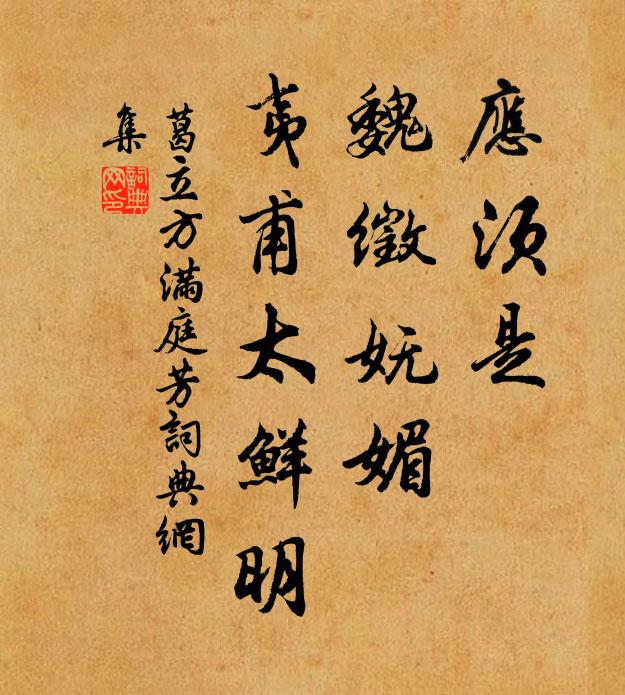 應須是
魏徵妩媚
夷甫太鮮明
葛立方滿庭芳詞典網
集
詞典
网印